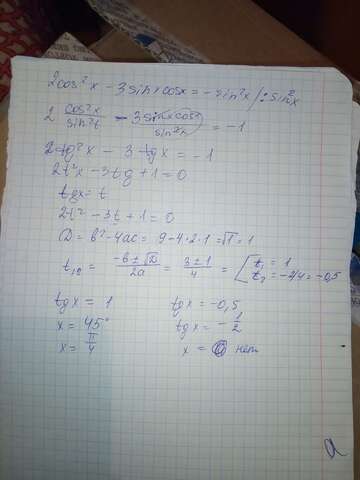 2cos²x - 3sinxcosx = -sin²x /: sin²x
2 cos²x/sin²t - 3sinxcosx/sin²x = -1
2tg²x - 3tgx = -1
2t²x - 3tg + 1 = 0
tgx = t
2t² - 3t + 1 = 0
D = b² - 4ac = 9 - 4·2·1 = √1 = 1
t₁,₂ = -b ± √D / 2a = 3 ± 1 / 4 = [ t₁ = 1
t₂ = -2/4 = -0,5
tgx = 1
x = 45°
x = π/4
tgx = -0,5
tgx = -1/2
x = нет
a